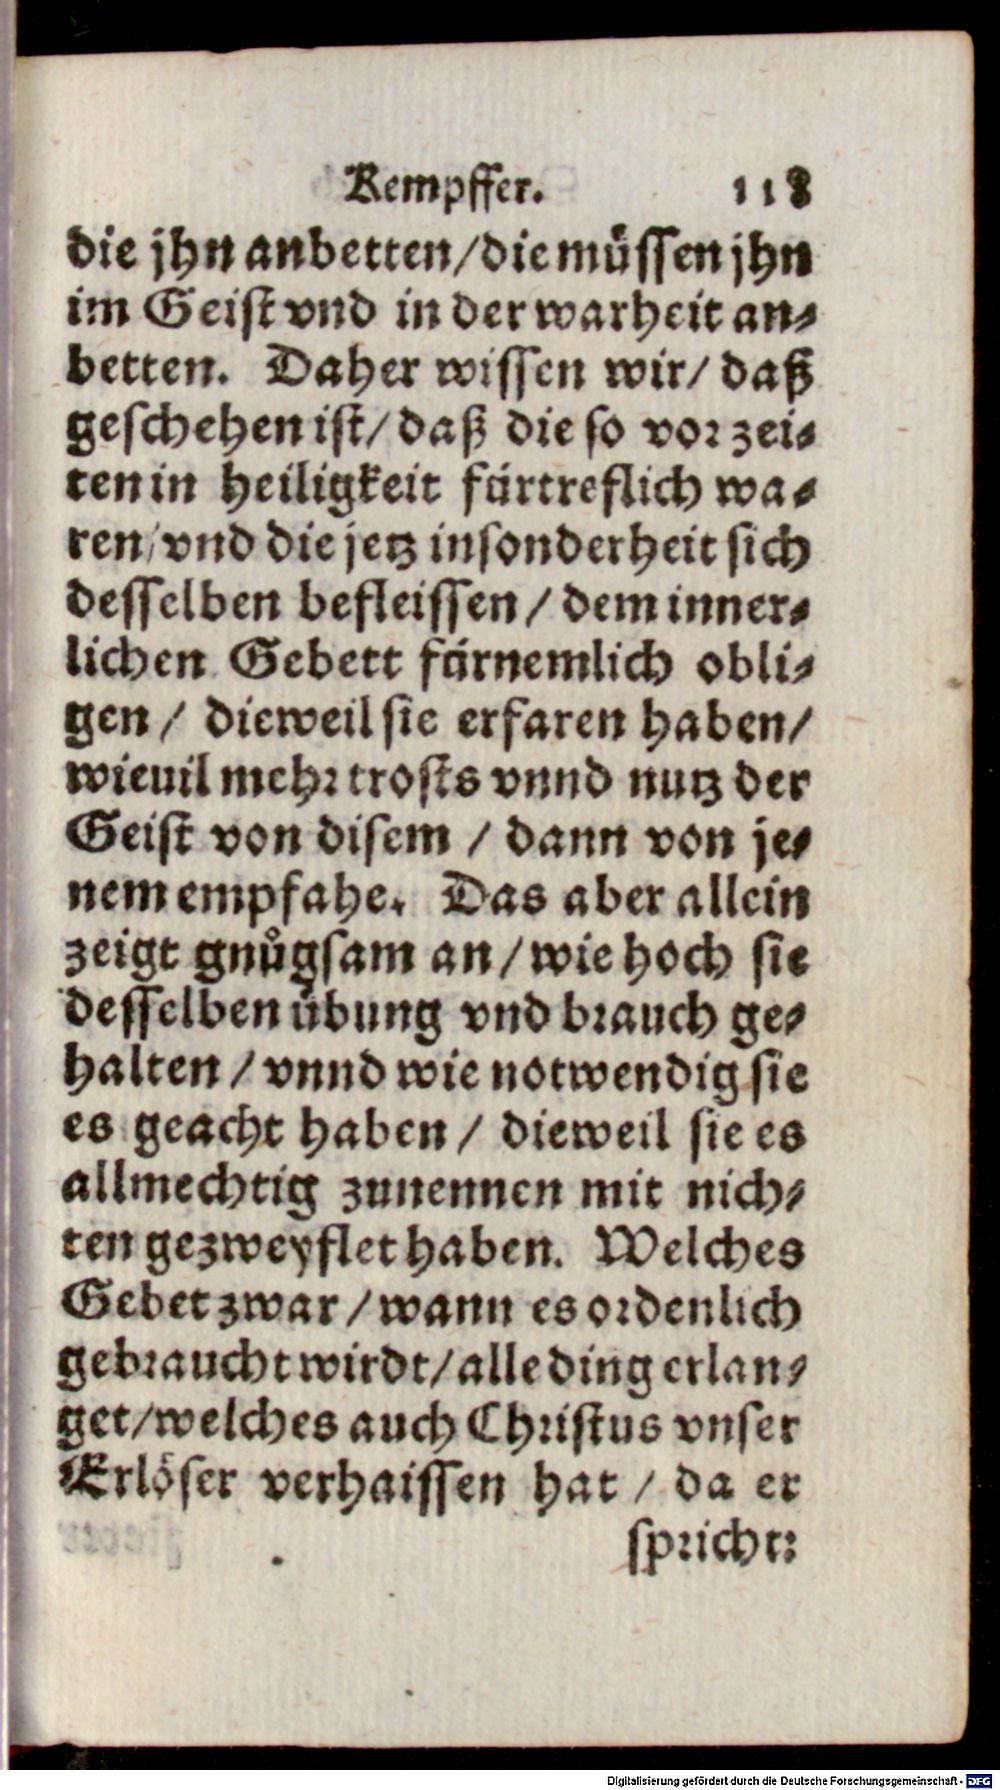 Kempffer. 118
die jhn anbetten/die müssen jhn
im Geist vnd in der warheit an-
betten. Daher wissen wir/ daß
geschehen ist/ daß die so vor zei-
ten in heiligkeit fürtreflich wa-
ren/ vnd die jetz insonderheit sich
desselben befleissen/ dem inner-
lichen Gebett fürnemlich obli-
gen/ dieweil sie erfaren haben/
wieuil mehr trosts vnnd nutz der
Geist von disem / dann von je-
nem empfahe. Das aber allein
zeigt gnůgsam an/wie hoch sie
desselben übung vnd brauch ge-
halten/ vnnd wie notwendig sie
es geacht haben/ dieweil sie es
allmechtig zunennen mit nich-
ten gezweyflet haben. Welches
Gebet zwar/wann es ordenlich
gebraucht wirdt/alle ding erlan-
get/welches auch Christus vnser
Erlöser verhaissen hat / da er
spricht:
Digitalisierung gefördert durch die Deutsche Forschungsgemeinschaft - DFG